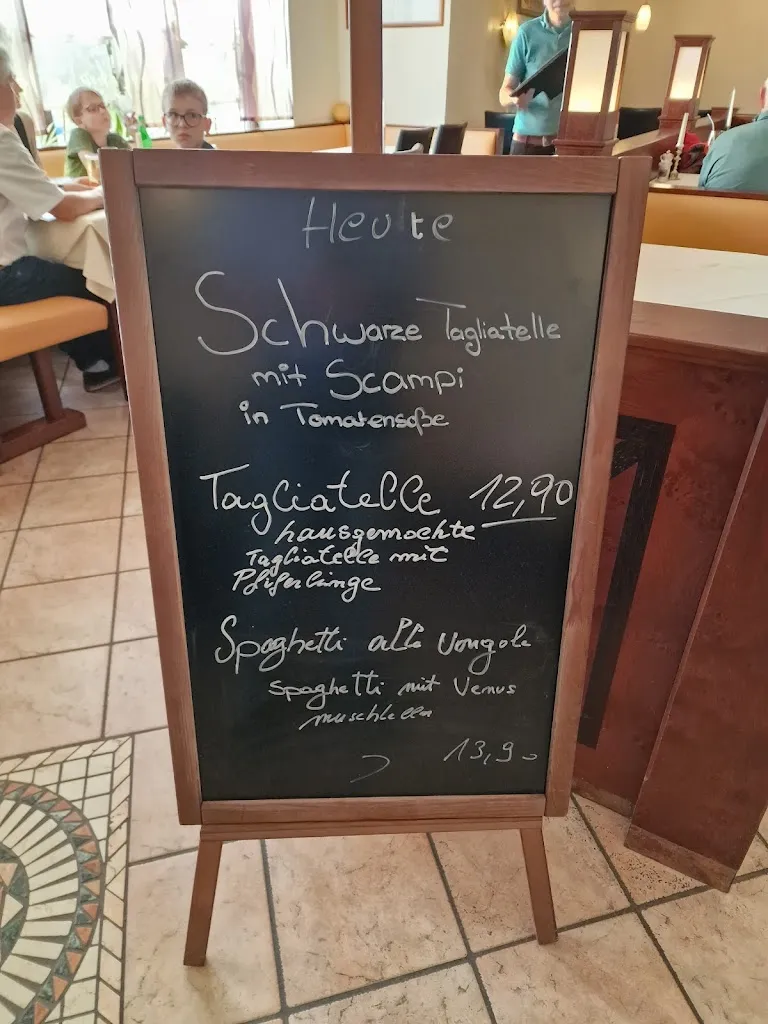 Heute
Schwarze Tagliatelle
mit Scampi
in Tomatensoße
Tagliatelle 12,90
hausgemachte
Tagliatelle mit
Pfiferlinge
Spaghetti alle Vongole
Spaghetti mit Venus
muschlella
13,90